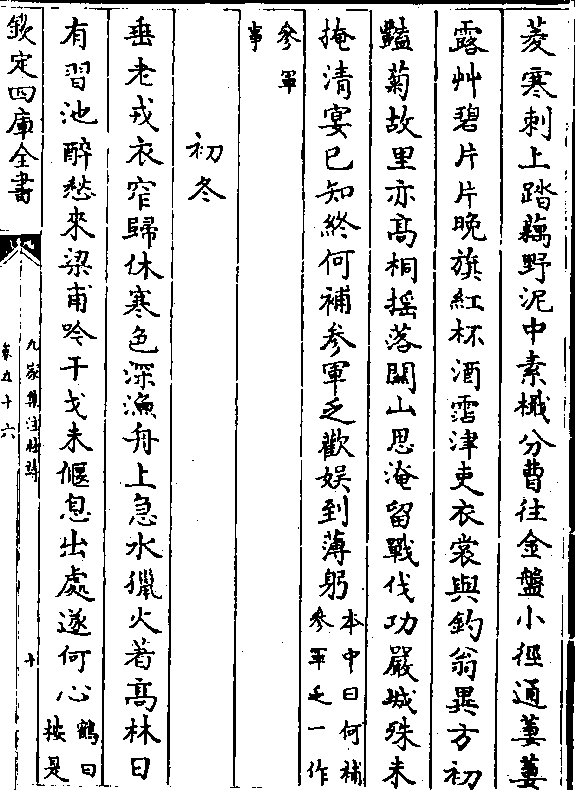 菱寒刺上踏藕野泥中素檝分曹往金盤小徑通萋萋
露艸碧片片晚旗紅杯酒霑津吏衣裳與釣翁異方初
豔菊故里亦髙桐揺落闗山思淹留戰伐功嚴城殊未
掩清宴已知終何補参軍乏歡娱到薄躬
本中曰何補
參軍乏一作
參軍
事
初冬
垂老戎衣窄歸休寒色深漁舟上急水獵火著髙林日
有習池醉愁來梁甫吟干戈未偃息出處遂何心
鶴曰
按是
欽定四庫全書
九家集注杜詩
卷五十六
十